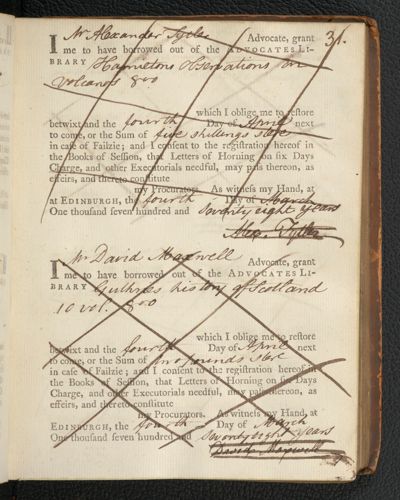 31.
I Mr Alexander Tytler Advocate, grant
me to have borrowed out of the ADVOCATES LI-
BRARY Hamiltons Observations on
Volcanos 8vo
which I oblige me to restore
betwixt and the fourth Day of April next
to come, or the Sum of five shillings ster
in case of Failzie; and I consent to the registration hereof in
the Books of Session, that Letters of Horning on six Days
Charge, and other Executorials needful, may pass thereon, as
effeirs, and thereto constitute
my Procurators. As witness my Hand, at
at EDINBURGH, the fourth Day of March
One thousand seven hundred and Seventy eight years
Alex. Tytler
I Mr David Maxwell Advocate, grant
me to have borrowed out of the ADVOCATES LI-
BRARY Guthries history of Scotland
10 vol. 8vo
which I oblige me to restore
betwixt and the fourth Day of April next
to come, or the Sum of two pounds ster
in case of Failzie; and I consent to the registration hereof in
the Books of Session, that Letters of Horning on six Days
Charge, and other Executorials needful, may pass thereon, as
effeirs, and thereto constitute
my Procurators. As witness my Hand, at
EDINBURGH, the fourth Day of March
One thousand seven hundred and Seventy eight years
David Maxwell